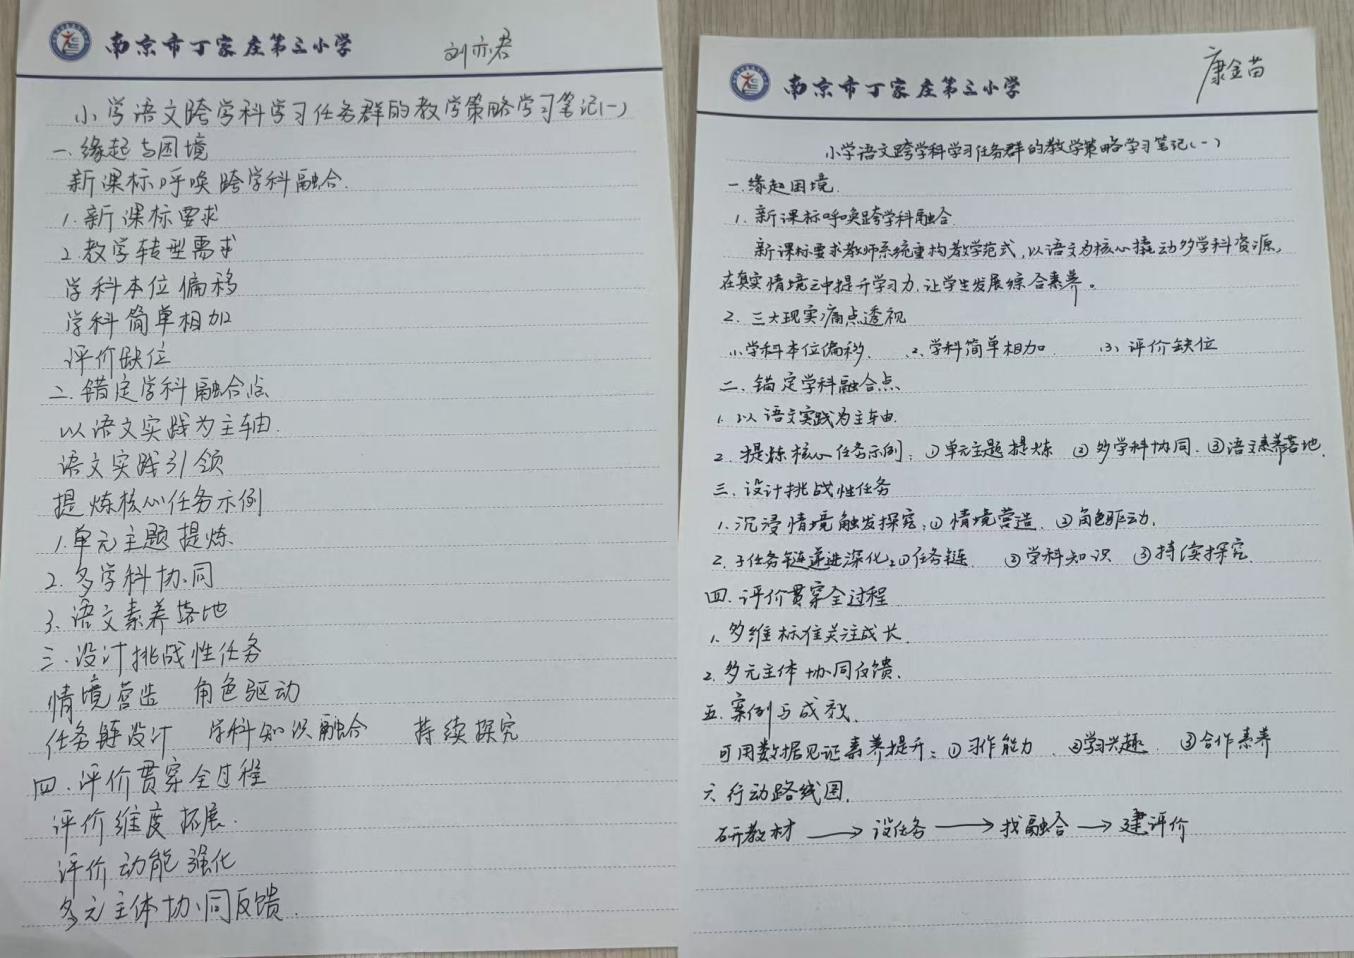 南京市丁家庄第三小学
刘亦君
小学语文跨学科学习任务群的教学策略学习笔记(一)
一.缘起与困境
新课标呼唤跨学科融合.
1.新课标要求
2.教学转型需求
学科本位偏移
学科简单相加
评价缺位
二.锚定学科融合点
以语文实践为主轴.
语文实践引领
提炼核心任务示例
1.单元主题提炼
2.多学科协同
3.语文素养落地
三.设计挑战性任务
情境营造 角色驱动
任务链设计 学科知识融合 持续探究
四.评价贯穿全过程
评价维度拓展.
评价动能强化
多元主体协同反馈.
南京市丁家庄第三小学
康金苗
小学语文跨学科学习任务群的教学策略学习笔记(一)
一.缘起困境.
1.新课标呼唤跨学科融合.
新课标要求教师系统重构教学范式,以语文为核心撬动多学科资源,
在真实情境之中提升学习力,让学生发展综合素养。
2.三大现实痛点透视
(1)学科本位偏移. (2)学科简单相加. (3)评价缺位
二.锚定学科融合点
1.以语文实践为主轴.
2.提炼核心任务示例:①单元主题提炼 ②多学科协同.③语文素养落地.
三.设计挑战性任务
1.沉浸情境触发探究:①情境营造.②角色驱动.
2.子任务链递进深化:①任务链. ②学科知识 ③持续探究.
四.评价贯穿全过程
1.多维标准关注成长.
2.多元主体协同反馈.
五.案例与成效.
可用数据见证素养提升:①习作能力.②学习兴趣.③合作素养
六行动路线图.
研教材→设任务→找融合→建评价